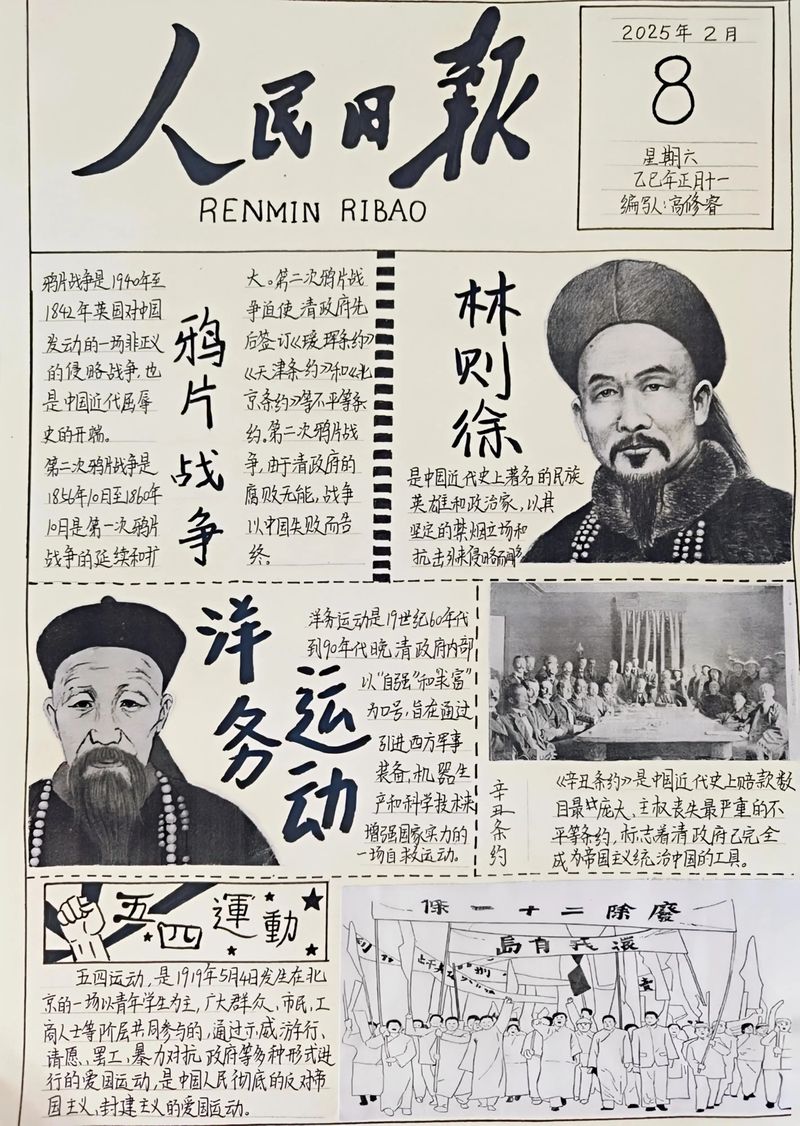 人民日報
RENMIN RIBAO
2025年2月
8
星期六
乙巳年正月十一
编写人:高修睿
鸦片战争
鸦片战争是1940年至
1842年英国对中国
发动的一场非正义
的侵略战争,也
是中国近代屈辱
史的开端。
第二次鸦片战争是
1856年10月至1860年
10月是第一次鸦片
战争的延续和扩
大。第二次鸦片战
争迫使清政府先
后签订《瑷珲条约》
《天津条约》和《北
京条约》等不平等条
约。第二次鸦片战
争,由于清政府的
腐败无能,战争
以中国失败而告
终。
林则徐
是中国近代史上著名的民族
英雄和政治家,以其
坚定的禁烟立场和
抗击外来侵略而
洋务运动
洋务运动是19世纪60年代
到90年代晚清政府内部
以“自强”和“求富”
为口号,旨在通过
引进西方军事
装备,机器生
产和科学技术来
增强国家实力的
一场自救运动。
辛丑条约
《辛丑条约》是中国近代史上赔款数
目最庞大、主权丧失最严重的不
平等条约,标志着清政府已完全
成为帝国主义统治中国的工具。
五四運動
五四运动,是1919年5月4日发生在北
京的一场以青年学生为主,广大群众、市民、工
商人士等阶层共同参与的,通过示威游行、
请愿、罢工、暴力对抗政府等多种形式进
行的爱国运动,是中国人民彻底的反对帝
国主义,封建主义的爱国运动。
保一十二除廢
島青我還